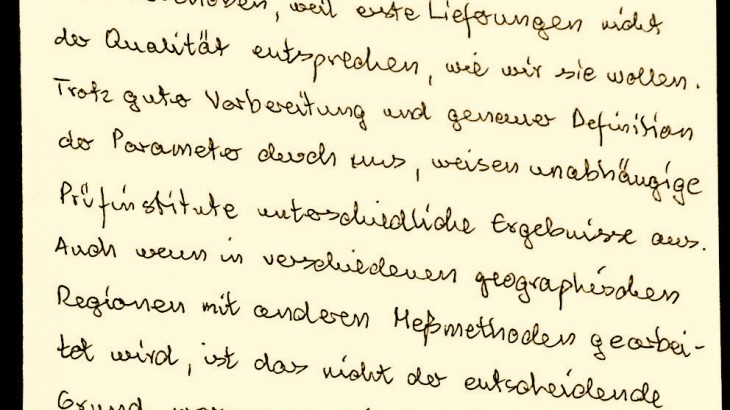 weil erste Lieferungen nicht
der Qualität entsprechen, wie wir sie wollen.
Trotz guter Vorbereitung und genauer Definition
der Parameter durch uns, weisen unabhängige
Prüfinstitute unterschiedliche Ergebnisse aus.
Auch wenn in verschiedenen geographischen
Regionen mit anderen Meßmethoden gearbei-
tet wird, ist das nicht der entscheidende
Grund